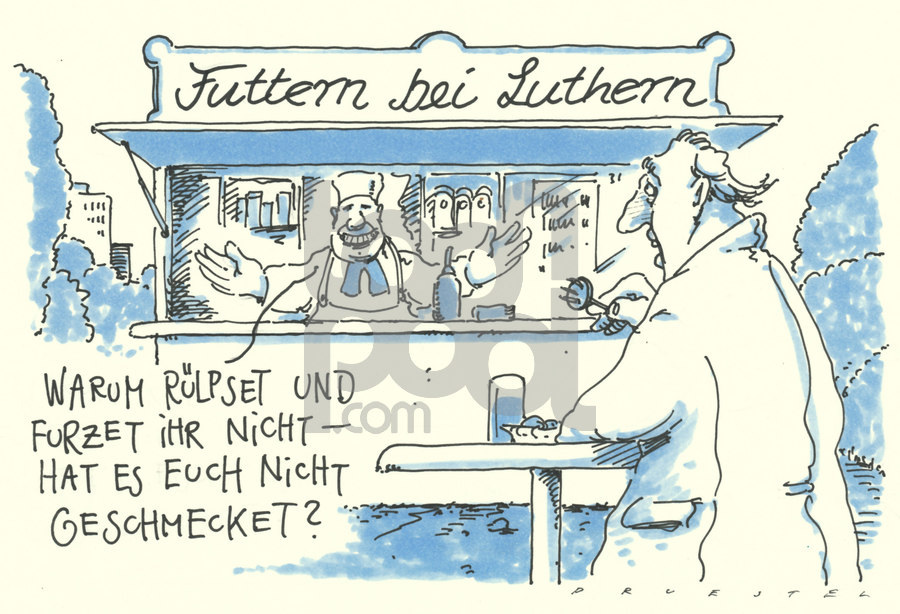 Futtern bei Luthern
WARUM RÜLPSET UND
FURZET IHR NICHT —
HAT ES EUCH NICHT
GESCHMECKET?
toonpool.com
PRUESTEL